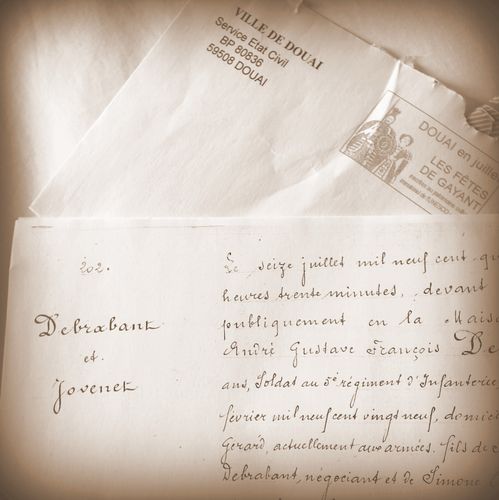 VILLE DE DOUAI
Service Etat Civil
BP 80836
59508 DOUAI
DOUAI en juillet
LES FÊTES
DE GAYANT
202.
Debrabant
et
Jovenet
Le seize juillet mil neuf cent
heures trente minutes, devant
publiquement en la Mais
André Gustave François De
ans, Soldat au 5e régiment d'Infanterie
février mil neuf cent vingt neuf, domic
Gerard, actuellement aux armées. fils de
Debrabant, négociant et de Simone